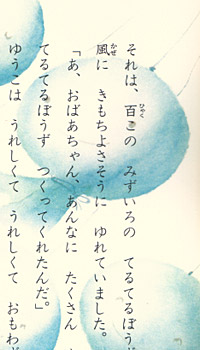 それは、百この みずいろの てるてるぼうず
風に きもちよさそうに ゆれていました。
「あ、おばあちゃん、あんなに たくさん
てるてるぼうず つくってくれたんだ。」
ゆうこは うれしくて うれしくて おもわず